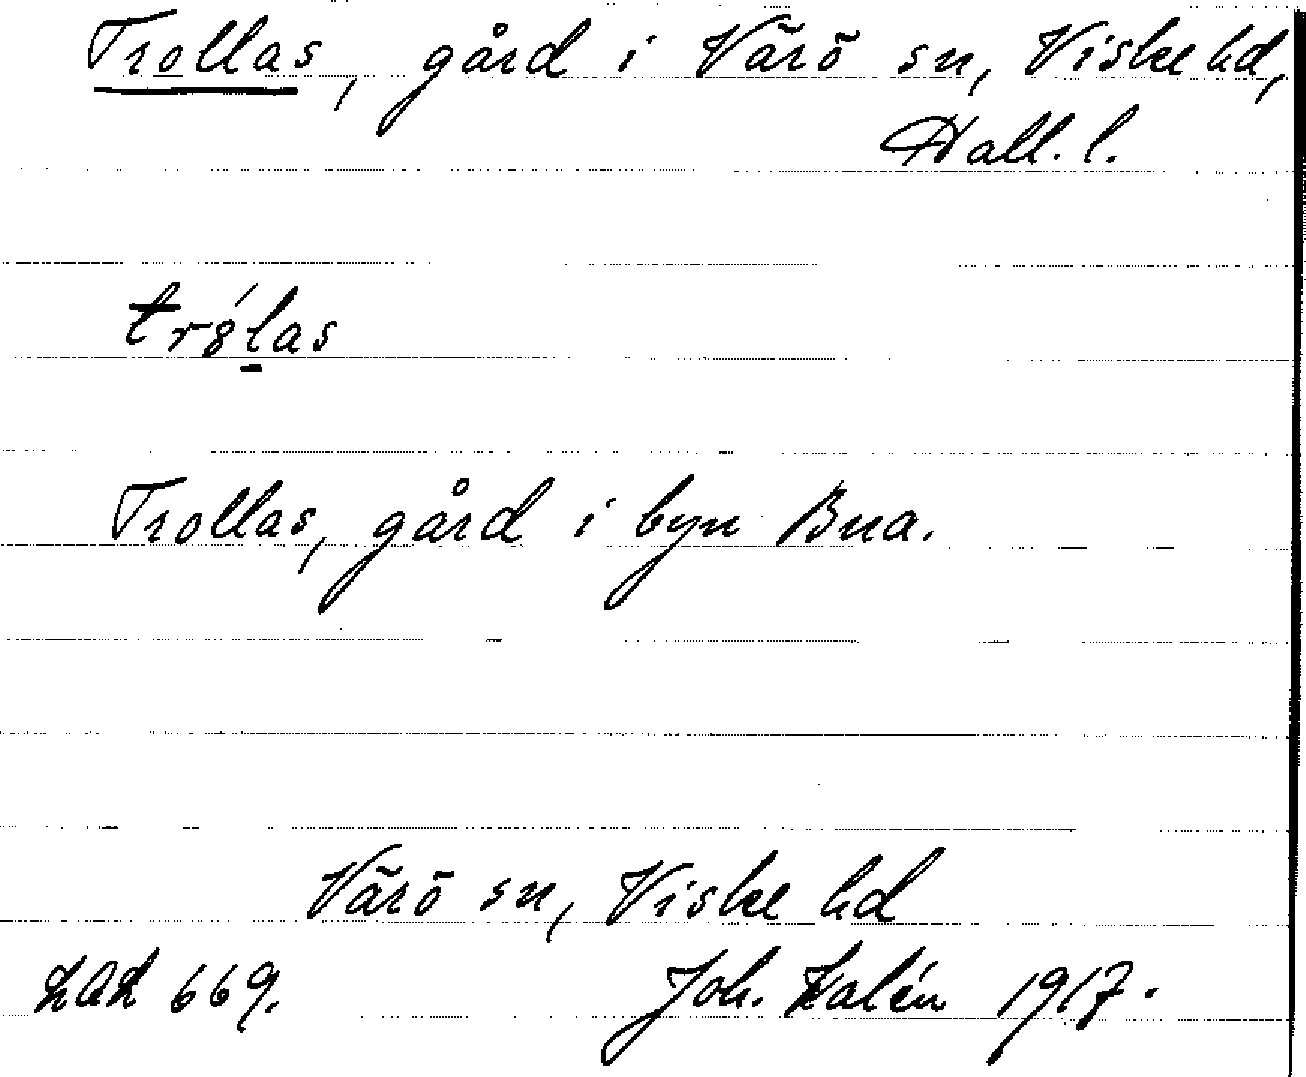 Trollas, gård i Värö sn, Viske hd,
Hall. l.
tr8́l̠as
Trollas, gård i byn Bua.
Värö sn, Viske hd
LAL 669. Joh. Kalén 1917.